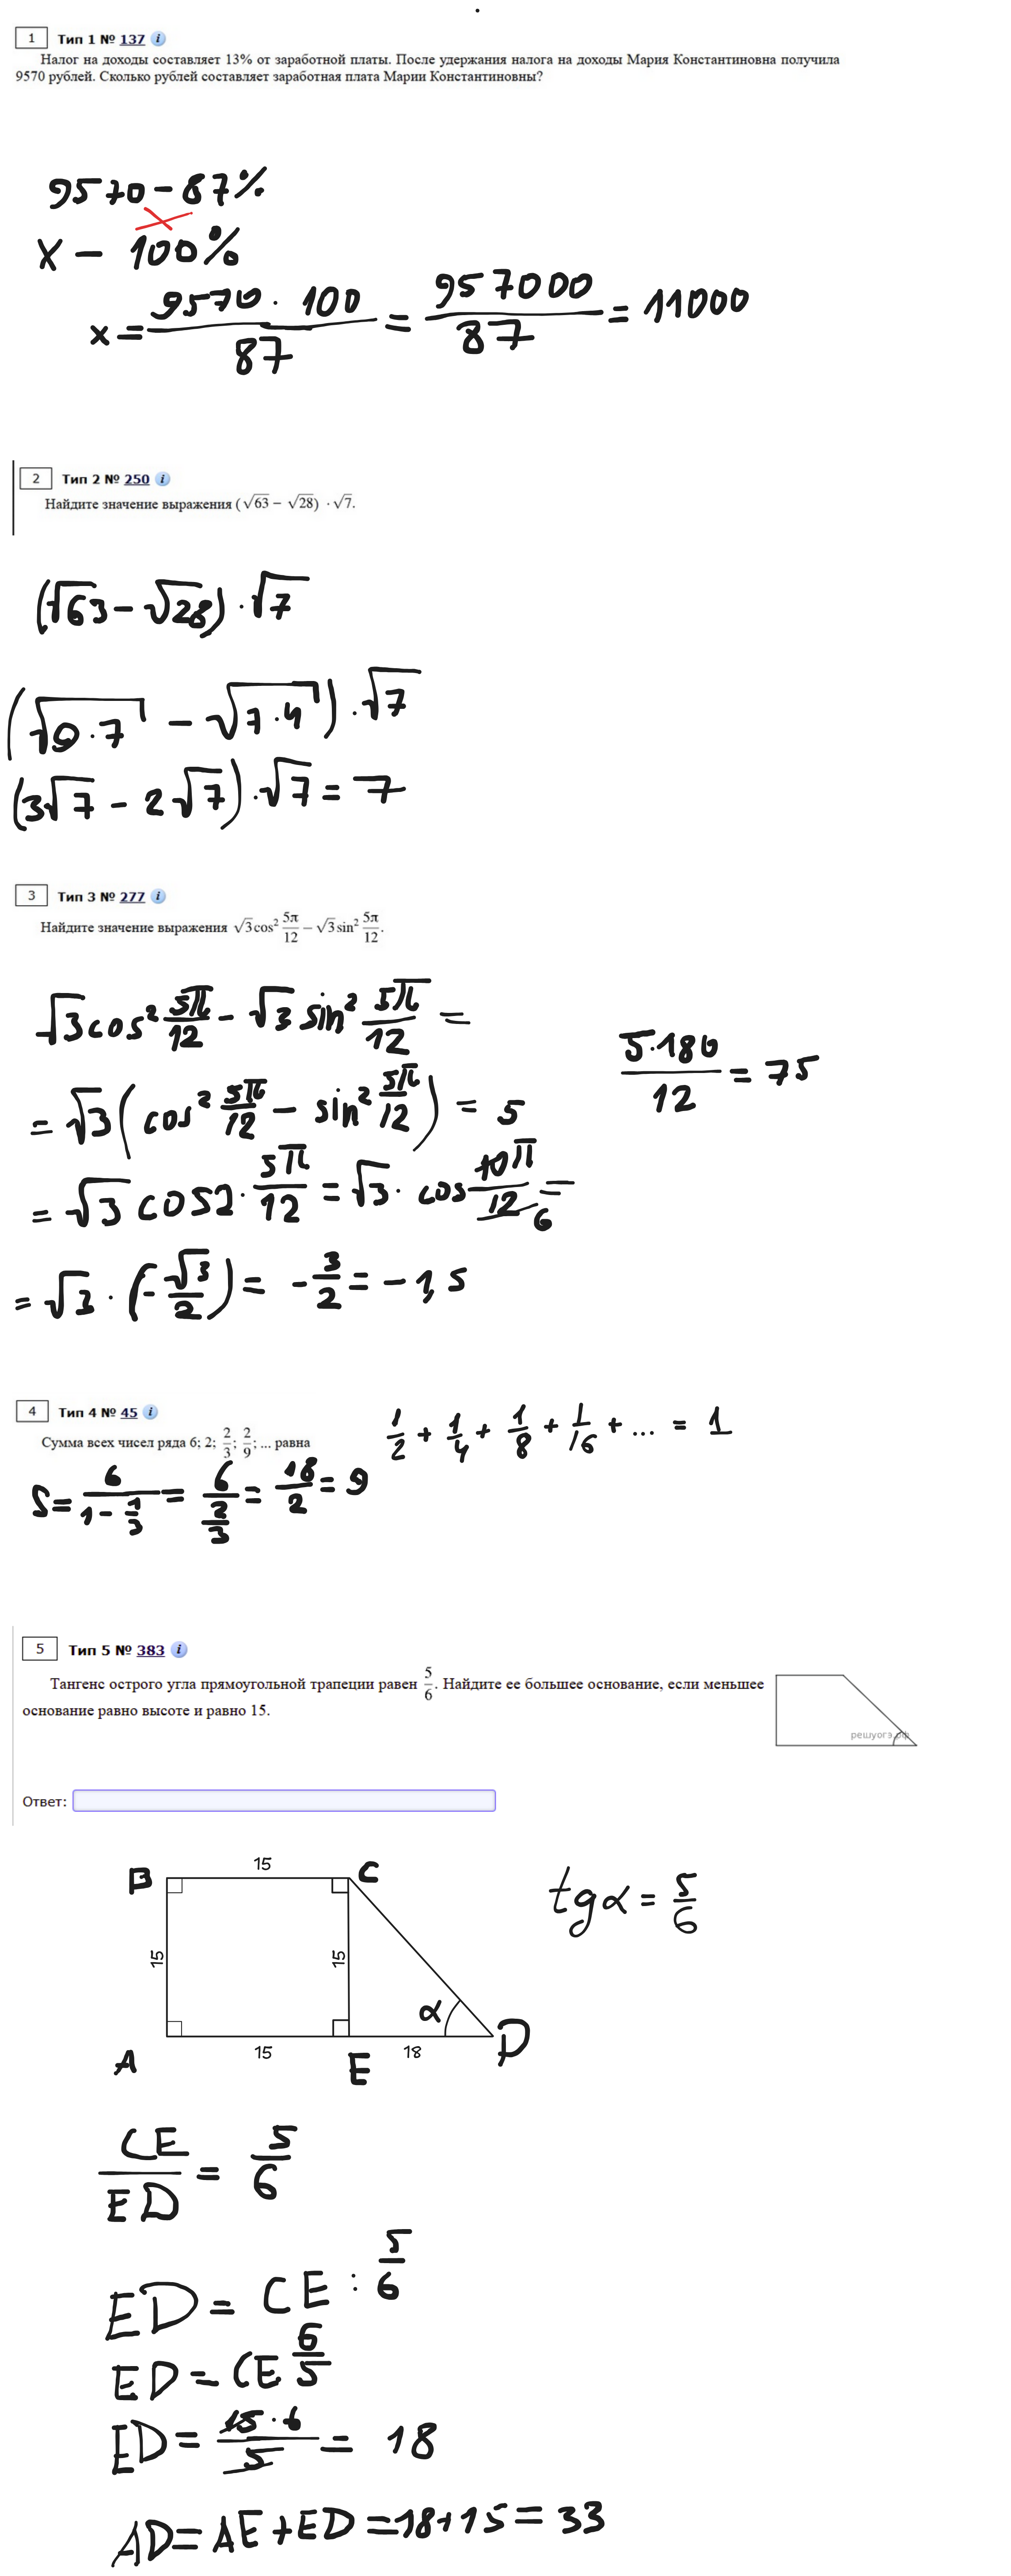 1 Тип 1 № 137 i
Налог на доходы составляет 13% от заработной платы. После удержания налога на доходы Мария Константиновна получила
9570 рублей. Сколько рублей составляет заработная плата Марии Константиновны?
9570 – 87%
x – 100%
x = 9570 · 100 / 87 = 957000 / 87 = 11000
2 Тип 2 № 250 i
Найдите значение выражения (√63 − √28) · √7.
(√63 − √28) · √7
(√9·7 − √7·4) · √7
(3√7 − 2√7) · √7 = 7
3 Тип 3 № 277 i
Найдите значение выражения √3 cos² 5π/12 − √3 sin² 5π/12.
√3 cos² 5π/12 − √3 sin² 5π/12 =
5·180 / 12 = 75
= √3 (cos² 5π/12 − sin² 5π/12) =
= √3 cos 2 · 5π/12 = √3 · cos 10π/12 =
5
6
= √3 · (−√3/2) = −3/2 = −1,5
4 Тип 4 № 45 i
1/2 + 1/4 + 1/8 + 1/16 + ... = 1
Сумма всех чисел ряда 6; 2; 2/3; 2/9; ... равна
S = 6 / (1 − 1/3) = 6 / (2/3) = 18/2 = 9
5 Тип 5 № 383 i
Тангенс острого угла прямоугольной трапеции равен 5/6. Найдите ее большее основание, если меньшее
основание равно высоте и равно 15.
решуогэ.рф
Ответ:
B 15 C
tgα = 5/6
15 15
α
A 15 E 18 D
CE/ED = 5/6
ED = CE : 5/6
ED = CE 6/5
ED = 15·6 / 5 = 18
AD = AE + ED = 18+15 = 33